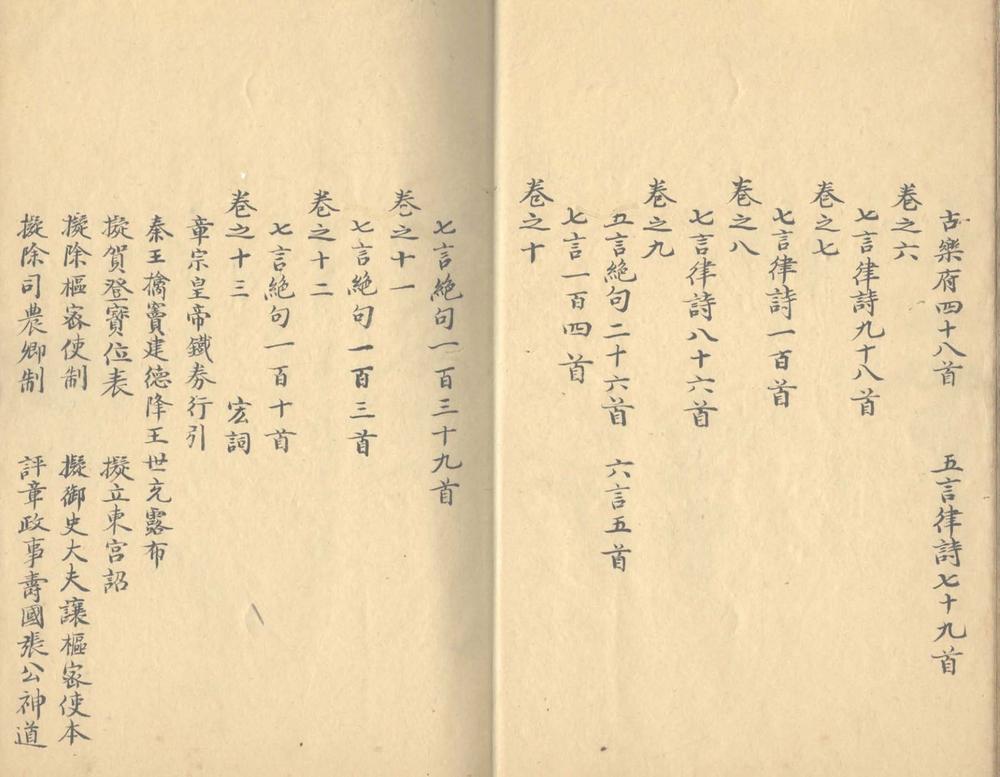 古樂府四十八首　五言律詩七十九首
卷之六
七言律詩九十八首
卷之七
七言律詩一百首
卷之八
七言律詩八十六首
卷之九
五言絕句二十六首　六言五首
七言一百四首
卷之十
七言絕句一百三十九首
卷之十一
七言絕句一百三首
卷之十二
七言絕句一百十首
卷之十三　宏詞
章宗皇帝鐵券行引
秦王擒竇建德降王世充露布
擬賀登寶位表　擬立東宮詔
擬除樞密使制　擬御史大夫讓樞密使本
擬除司農卿制　評章政事壽國張公神道